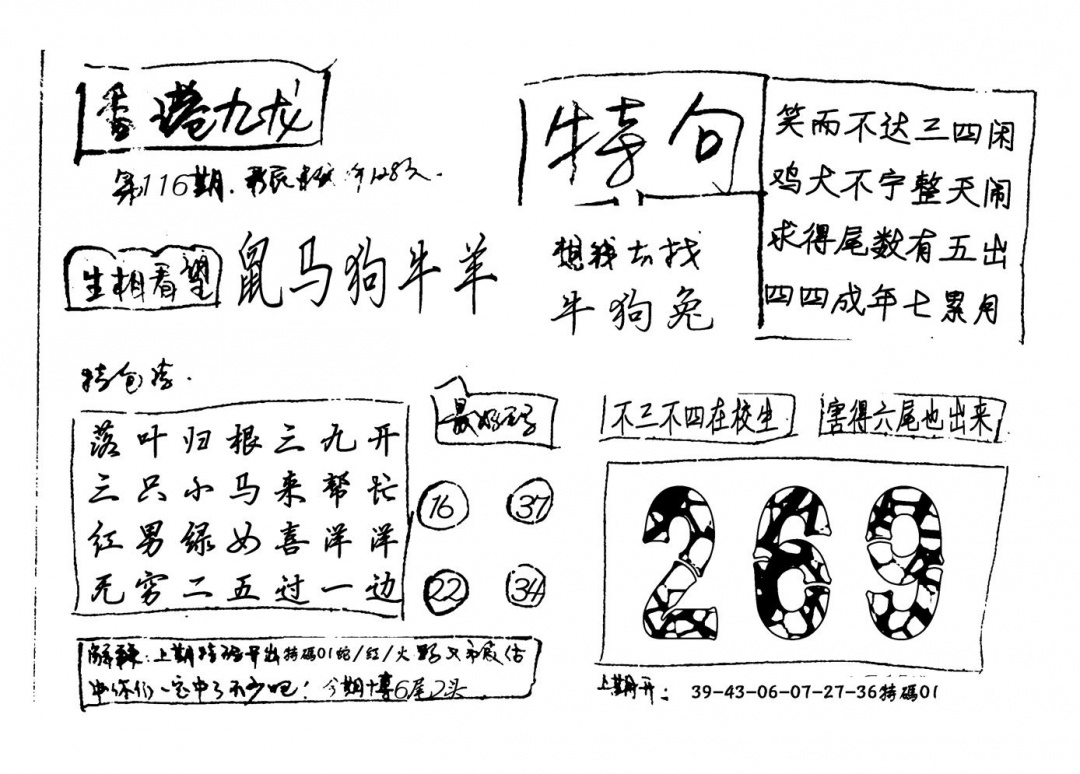 香港九龙
第116期.
生相看望
鼠马狗牛羊
特句
想我去找
牛狗兔
笑而不达三四闲
鸡犬不宁整天闹
求得尾数有五出
四四成年七累月
特包
落叶归根三九开
三只小马来帮忙
红男绿女喜洋洋
无穷二五过一边
最好
16 37
22 34
解释：上期特码开出特碼01蛇/红/火
中你们一定中了不少吧！今期十博6尾2头
不三不四在校生
害得六尾也出来
269
上期开：39-43-06-07-27-36特碼01